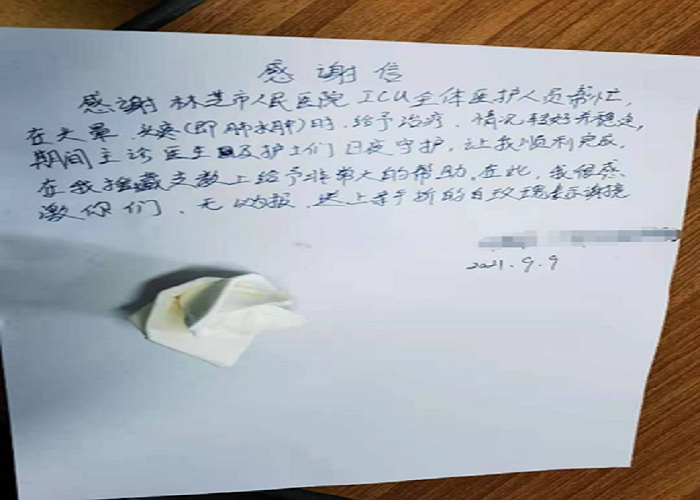 感谢信
感谢林芝市人民医院ICU全体医护人员帮忙,
在头晕 头疼(即肺水肿)时,给予治疗、情况轻好并稳定,
期间主诊医生及护士们日夜守护,让我顺利完成,
在我援藏支教上给予非常大的帮助。在此,我很感
激你们、无以为报,送上亲手折的白玫瑰表示谢意
2021.9.9